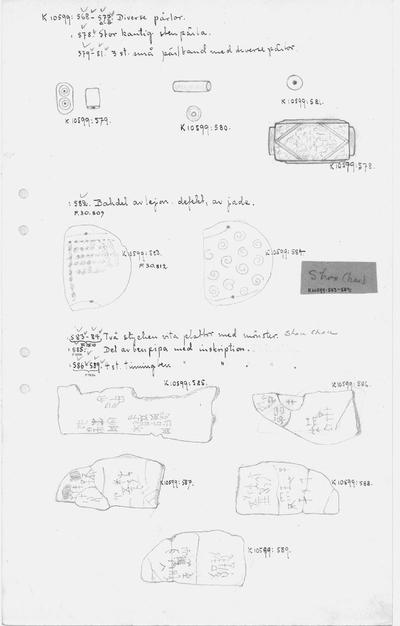 K 10599: 568-577. Diverse pärlor.
: 578. Stor kantig stenpärla.
579-81. 3 st. små pärlband med diverse pärlor.
K 10599: 579.
K 10599: 580.
K 10599: 581.
K 10599: 578.
: 582. Bakdel av lejon. defekt, av jade.
F.30.809
K 10599: 583.
F 30.812
K 10599: 584
Shou Chou
K 10599: 583-584
583-84. Två stycken vita plattor med mönster. Shou Chou
: 585. Del av benpipa med inskription.
: 586-589. 4 st.
K 10599: 585.
K 10599: 586.
K 10599: 587.
K 10599: 588.
K 10599: 589.